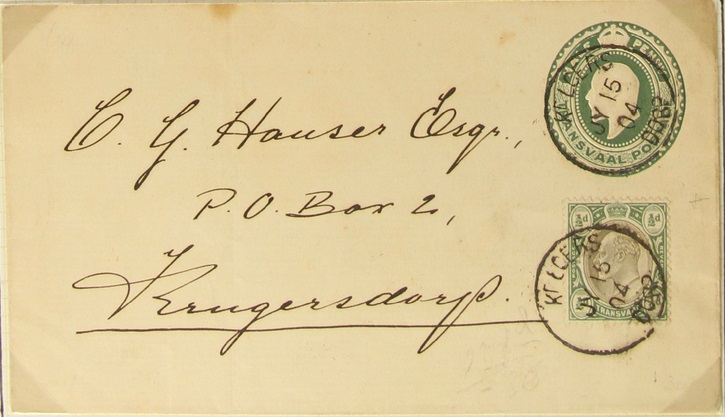 C. G. Hauser Esqr.,
P.O. Box 2,
Krugersdorp.
PENNY
TRANSVAAL
JY 15
04
½d ½d
TRANSVAAL
15
04